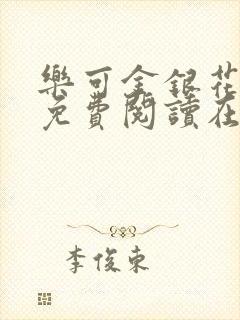 樂可金銀花
免費閱讀在
李俊東